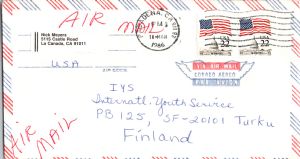 AIR
MAIL
Nick Meyers
5115 Castle Road
La Canada, CA 91011
USA
1986
USA 22
USA 22
VIA AIR MAIL
CORREO AEREO
PAR AVION
IYS
Internatl. Youth Service
PB 125, SF-20101 Turku
Finland
AIR
MAIL